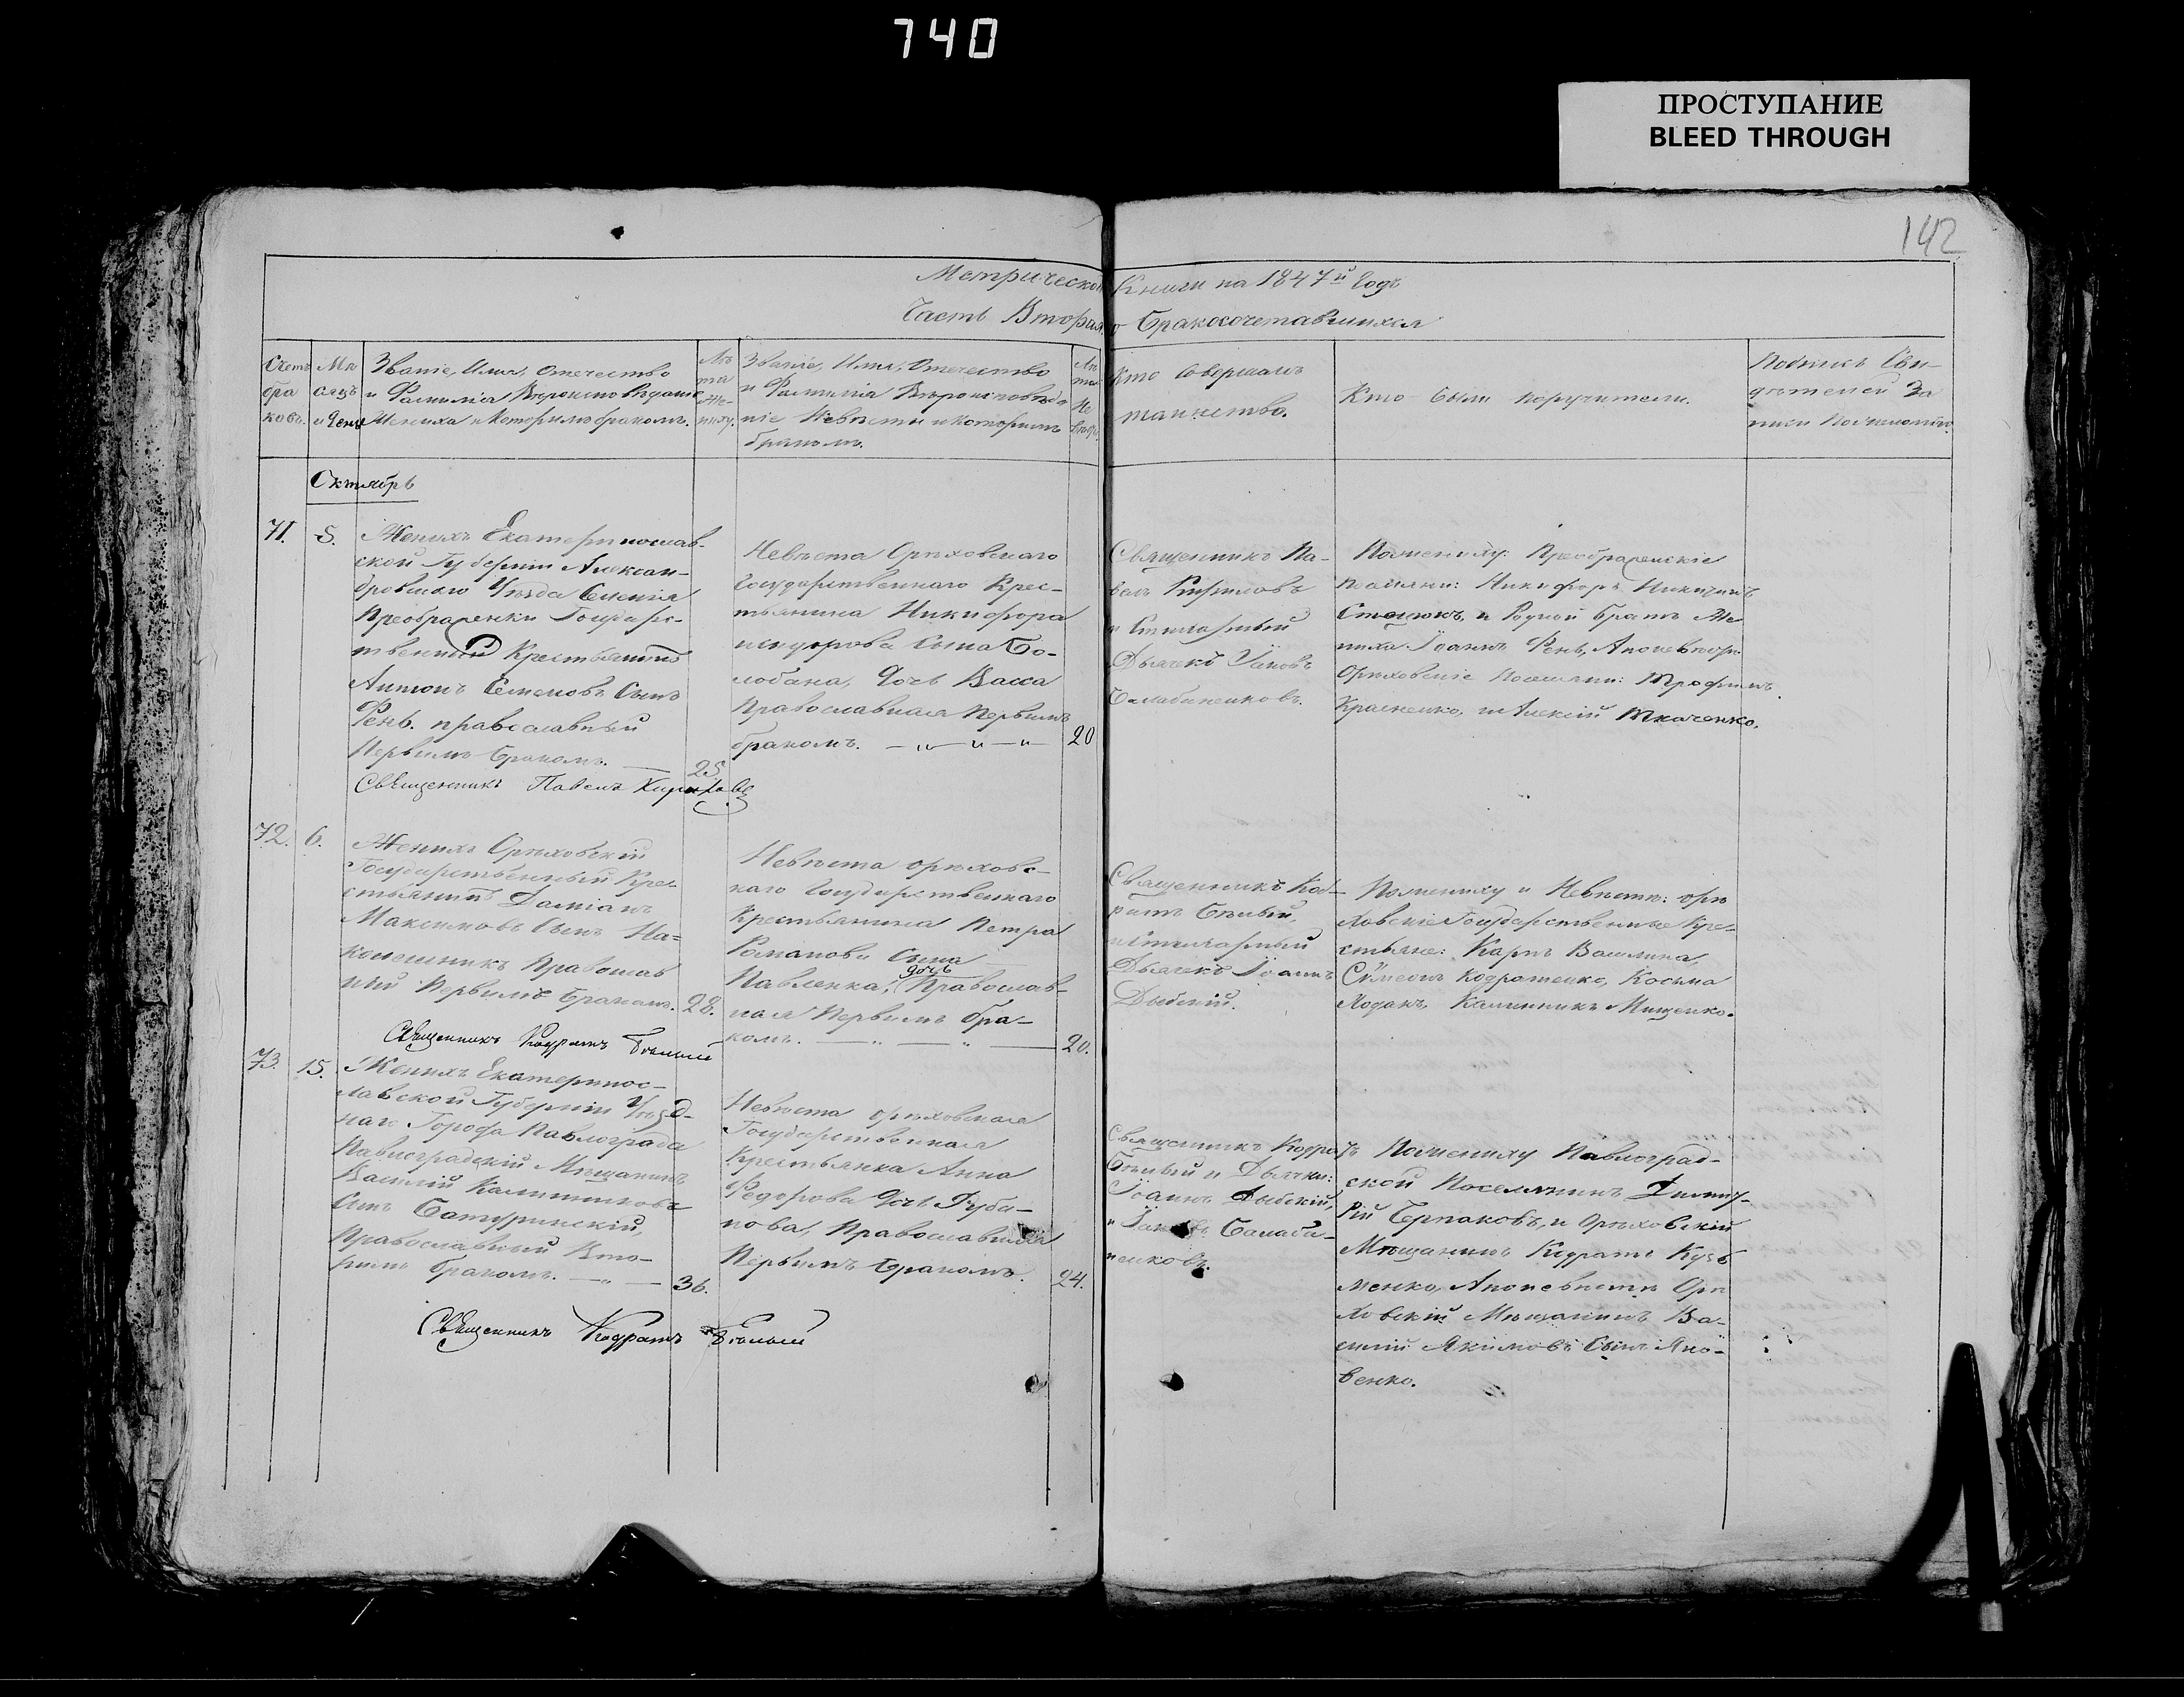 740
ПРОСТУПАНИЕ
BLEED THROUGH
142
Метрической Книги на 1847й годъ
Часть Вторая о Бракосочетавшихся
Счетъ
бра
ковъ.
Мѣ
сяцъ
и день
Званіе, Имя, Отечество
и Фамилія Вѣроисповѣданіе
Жениха и Которымъ бракомъ.
Лѣ
та
Же-
ниху.
Званіе, Имя, Отечество
и Фамилія Вѣроисповѣда
ніе Невѣсты и которымъ
бракомъ.
Лѣ
та
Не
вѣсты
Кто Совершалъ
таинство.
Кто были поручители.
Подпись Сви-
дѣтелей За
писи По желанію.
Октябрь
71.
5.
Женихъ Екатеринослав-
ской Губерніи Алексан-
дровскаго Уѣзда Селенія
Преображенки Государс-
твенный Крестьянинъ
Антонъ Семеновъ Сынъ
Фень. православный
Первымъ бракомъ.
25
Невѣста Орѣховскаго
Государственнаго Крес-
тьянина Никифора
сына Бо-
лобана, дочь Васса
Православная Первымъ
бракомъ.
20
Священникъ Па-
велъ Кириловъ
и Стихарный
Дьячекъ Іаковъ
Балабаненковъ.
По жениху: Преображенскіе
поселяни: Никифоръ
и Родной братъ Же
ниха Іоаннъ Фень, А по невѣстѣ
Орѣховскіе поселяни: Трофимъ
и Алексій Ткаченко.
Священникъ Павелъ Кириловъ
72.
6.
Женихъ Орѣховскій
Государственный Кре-
стьянинъ Даміанъ
Максимовъ Сынъ На=
конешникъ Православ
ный Первымъ бракомъ.
28.
Невѣста орѣховс-
каго Государственнаго
Крестьянина Петра
Романова Сына
Павленка, дочь Православ-
ная Первымъ бра-
комъ.
20.
Священникъ Код-
ратъ Бѣлый,
и Стихарный
Дьячекъ Іоаннъ
Дыбскій.
По жениху и Невѣсте: орѣ
ховскіе Государственные Кре-
стьяне: Карпъ Вашлина,
Сѵмеонъ Кодратенко, Косьма
Ходакъ, Калинникъ Мищенко.
Священникъ Кодратъ Бѣлый
73.
15.
Женихъ Екатеринос-
лавской Губерніи Уѣзд-
наго Города Павлограда
Павлоградскій Мѣщанинъ
Василій Калинниковъ
Сынъ Батуринскій,
Православный Вто-
рымъ бракомъ.
36.
Невѣста орѣховская
Государственная
Крестьянка Анна
Федорова дочь Руба-
нова, Православная
Первымъ бракомъ.
24.
Священникъ Кодратъ
Бѣлый и Дьячки:
Іоаннъ Дыбскій,
и Іаковъ Балаба-
ненковъ.
По жениху Павлоград-
ской Поселянинъ Димит-
рій Черпаковъ, и Орѣховскій
Мѣщанинъ Кодратъ Кузь
менко, А по невѣсте Орѣ
ховскій Мѣщанинъ Ва-
силій Якимовъ Сынъ Яко-
венко.
Священникъ Кодратъ Бѣлый